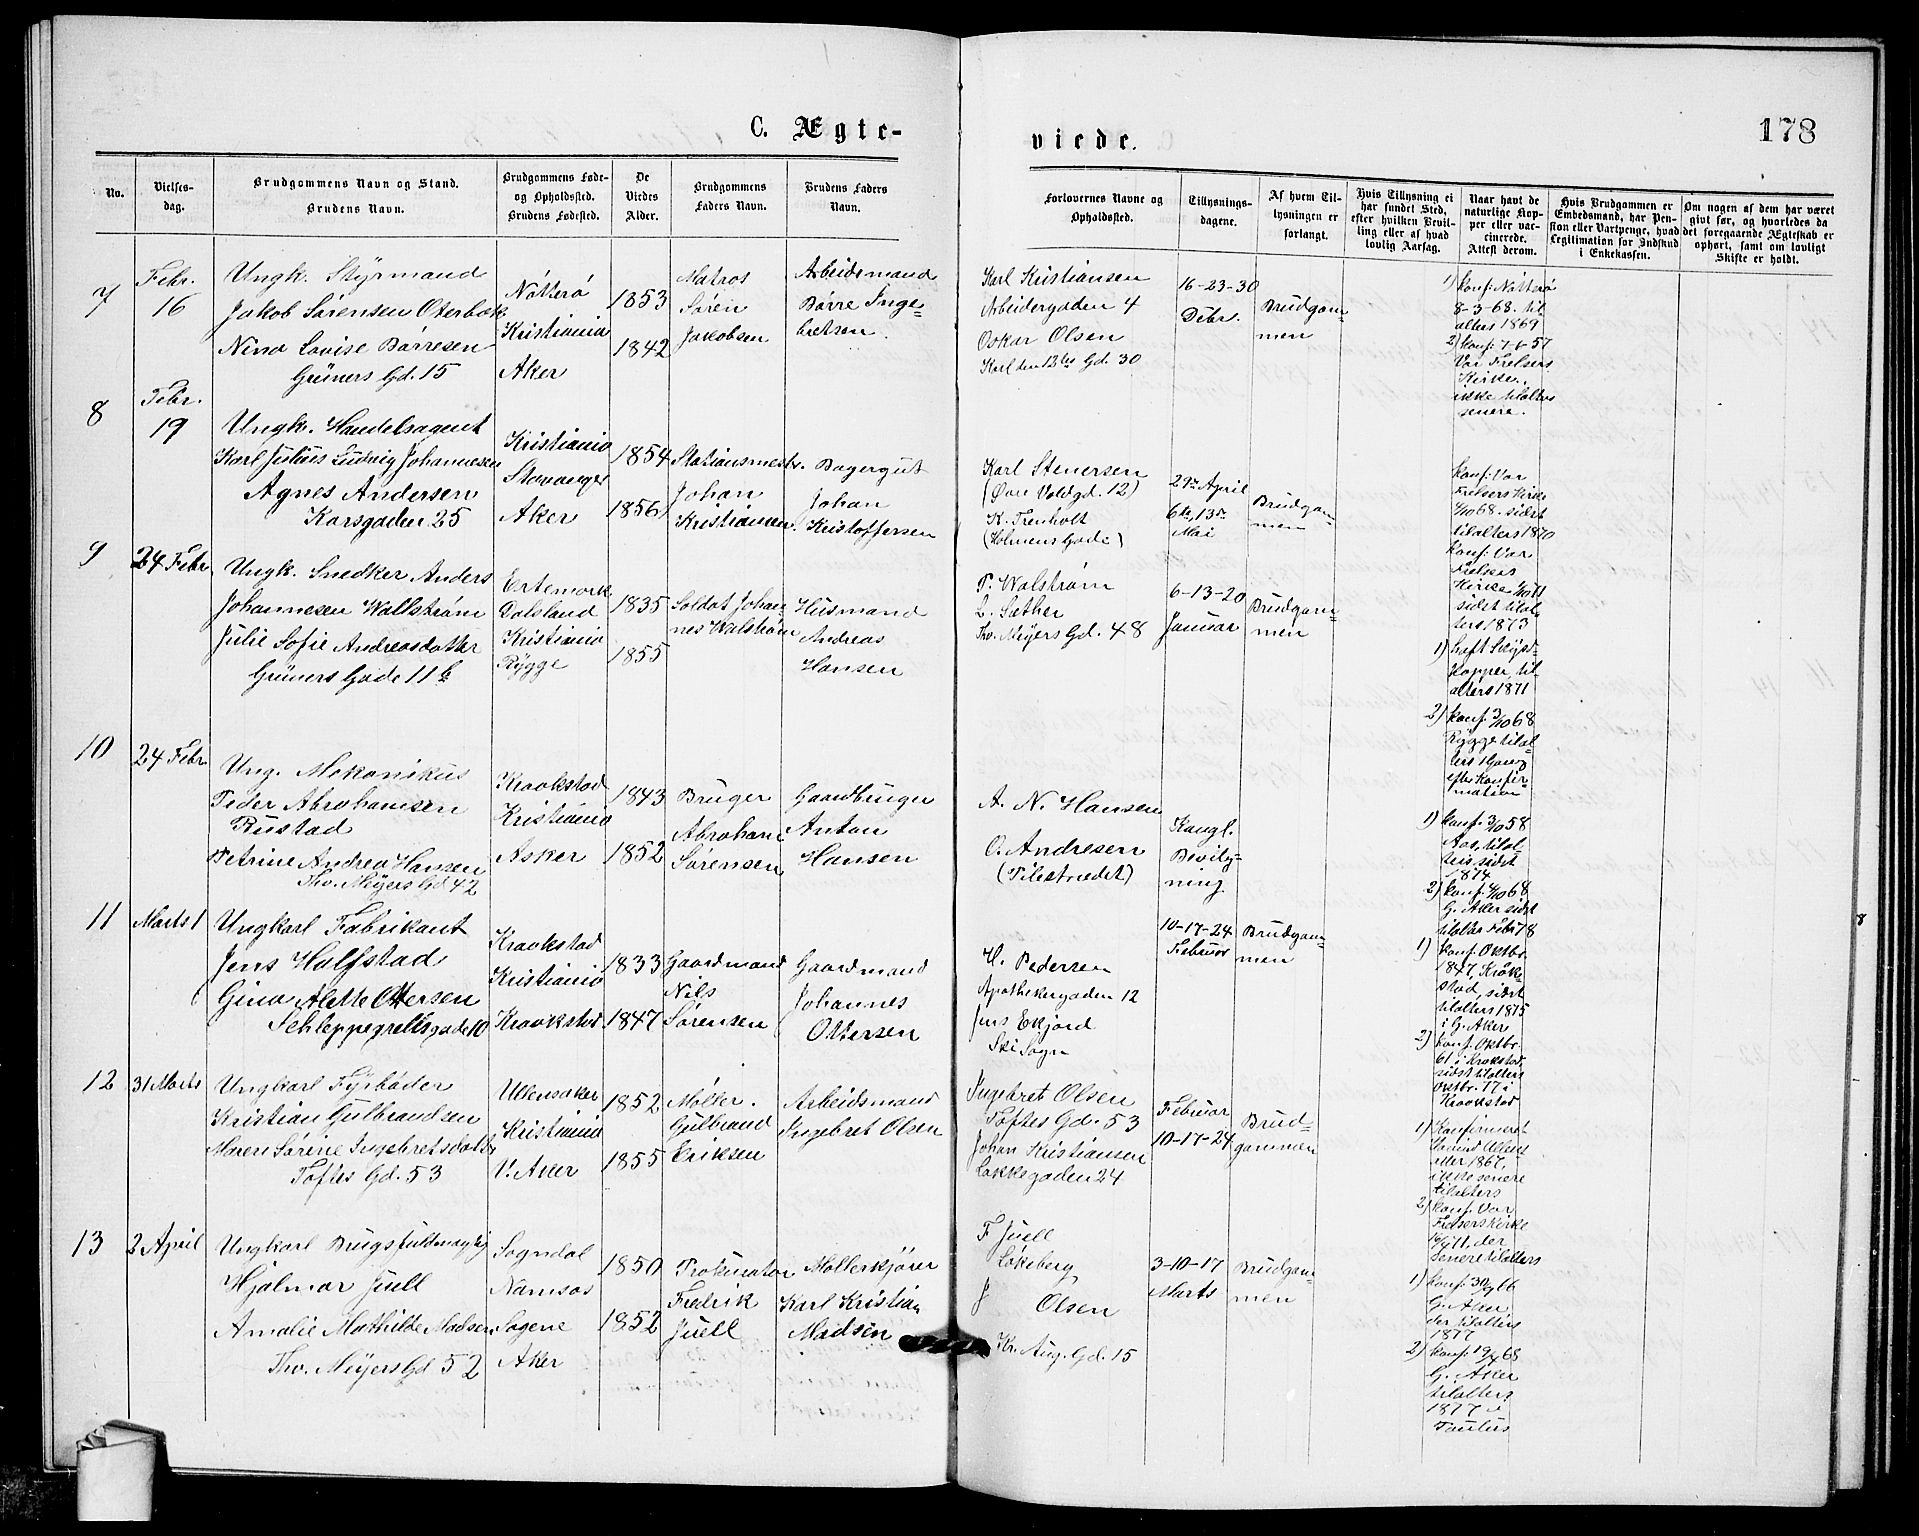 C. Ægte-
viede.
178
No.
Vielses-
dag.
Brudgommens Navn og Stand.
Brudens Navn.
Brudgommens Føde-
og Opholdssted.
Brudens Fødested.
De
Viedes
Alder.
Brudgommens
Faders Navn.
Brudens Faders
Navn.
Forlovernes Navne og
Opholdssted.
Tillysnings-
dagene.
Af hvem Til-
lysningen er
forlangt.
Hvis Tillysning ei
har fundet Sted,
efter hvilken Bevil-
ling eller af hvad
lovlig Aarsag.
Naar havt de
naturlige Kop-
per eller vac-
cinerede.
Attest derom.
Hvis Brudgommen er
Embedsmand, har Pen-
sion eller Vartpenge, hvad
Legitimation for Indskud
i Enkekassen.
Om nogen af dem har været
givt før, og hvorledes da
det foregaaende Ægteskab er
ophørt, samt om lovligt
Skifte er holdt.
7
Febr.
16
Ungk. Styrmand
Jakob Sørensen Oterbæk
Nina Lovise Børresen
Grüners Gd. 15
Nötterö
Kristiania
Aker
1853
1842
Matros
Søren
Jakobsen
Arbeidsmand
Børre Inge-
bretsen
Karl Kristiansen
Arbeidergaden 4
Oskar Olsen
Karl den 12tes Gd. 30
16-23-30
Debr.
Brudgom-
men
1) konf. Nötterö
8-3-68. til
alters 1869
2) konf. 7-6-57
Vor Frelsers
Kirke,
ikke tilalters
senere.
8
Febr.
19
Ungk. Handelsagent
Karl Julius Ludvig Johannesen
Agnes Andersen
Korsgaden 25
Kristiania
Stavanger
Aker
1854
1856
Stationsmestr.
Johan
Kristiansen
Bagergut
Johan
Kristoffersen
Karl Stenersen
(Øvre Voldgd. 12)
K. Trenholt
(Holmens Gade)
29de April
6te, 13de
Mai
Brudgom-
men
konf. Vor
Frelsers Kirke
4/10 68. sidst
tilalters 1870
konf. Vor
Frelsers
Kirke 1/10 71
sidst tilal-
ters 1873
9
24 Febr.
Ungk. Snedker Anders
Johannesen Wallstrøm
Julie Sofie Andreasdatter
Grüners Gade 11 b
Ertemark
Dalsland
Kristiania
Rygge
1835
1855
Soldat Johan-
nes Walstrøm
Husmand
Andreas
Hansen
P. Walstrøm
L. Sæther
Thv. Meyers Gd. 48
6-13-20
Januar
Brudgom-
men
1) haft Skyst-
kopper, til
alters 1871
2) konf. 3/10 68
Rygge tilal-
ters 1 Gang
efter Konfir-
mation
10
24 Febr.
Ung. Mekanikus
Peder Abrahamsen
Rustad
Petrine Andrea Hansen
Thv. Meyers Gd 42
Kraakstad
Kristiania
Asker
1843
1852
Bruger
Abraham
Sørensen
Gaardbruger
Anton
Hansen
A. N. Hansen
O. Andresen
(Pilestrædet)
Kongl.
Bevilg-
ning.
1) konf. 3/10 58
Aas, tilal-
ters, sidst
1874
2) konf. 4/10 68
G. Aker sidst
tilalters Febr 78
11
Marts 1
Ungkarl Fabrikant
Jens Halfstad
Gina Alette Ottersen
Schleppegrellsgade 10
Kraakstad
Kristiania
Kraakstad
1833
1847
Gaardmand
Nils
Sørensen
Gaardmand
Johannes
Ottersen
H. Pedersen
Apothekergaden 12
Jens Ekjord
Ski Sogn
10-17-24
Februar
Brudgom-
men
1) konf. Oktbr.
1847, Kråk-
stad, sidst
tilalters 1875
i G. Aker
2) konf. Oktbr.
61 i Krakstad,
sidst tilalters
Oktbr. 77 i
Kraakstad
12
31 Marts
Ungkarl Fyrbøder
Kristian Gulbrandsen
Maren Sørine Ingebretsdatter
Toftes Gd. 53
Ullensaker
Kristiania
V. Aker
1852
1855
Møller
Gulbrand
Eriksen
Arbeidsmand
Ingebret Olsen
Ingebret Olsen
Toftes Gd. 53
Johan Kristiansen
Løkkegaden 24
Februar
10-17-24
Brud-
gommen
1) Konfirmeret
Ullens-
aker 1867,
ikke senere
tilalters
2) konf. Vor
Frelsers kirke
71, der
senere tilalters
13
2 April
Ungkarl Brugsfuldmægtig
Hjalmar Juell
Amalie Mathilde Madsen
Thv. Meyers Gd 52
Sogndal
Namsos
Sagene
Aker
1850
1852
Prokurator
Fredrik
Juell
Møllerkjører
Karl Kristian
Madsen
F Juell
Løkeberg
J Olsen
Kr. Aug. Gd. 15
3-10-17
Marts
Brudgom-
men
1) konf. 30/9 66
G. Aker
der tilalters
1877
2) konf. 19/4 68
G. Aker
tilalters
1877 i
Paulus